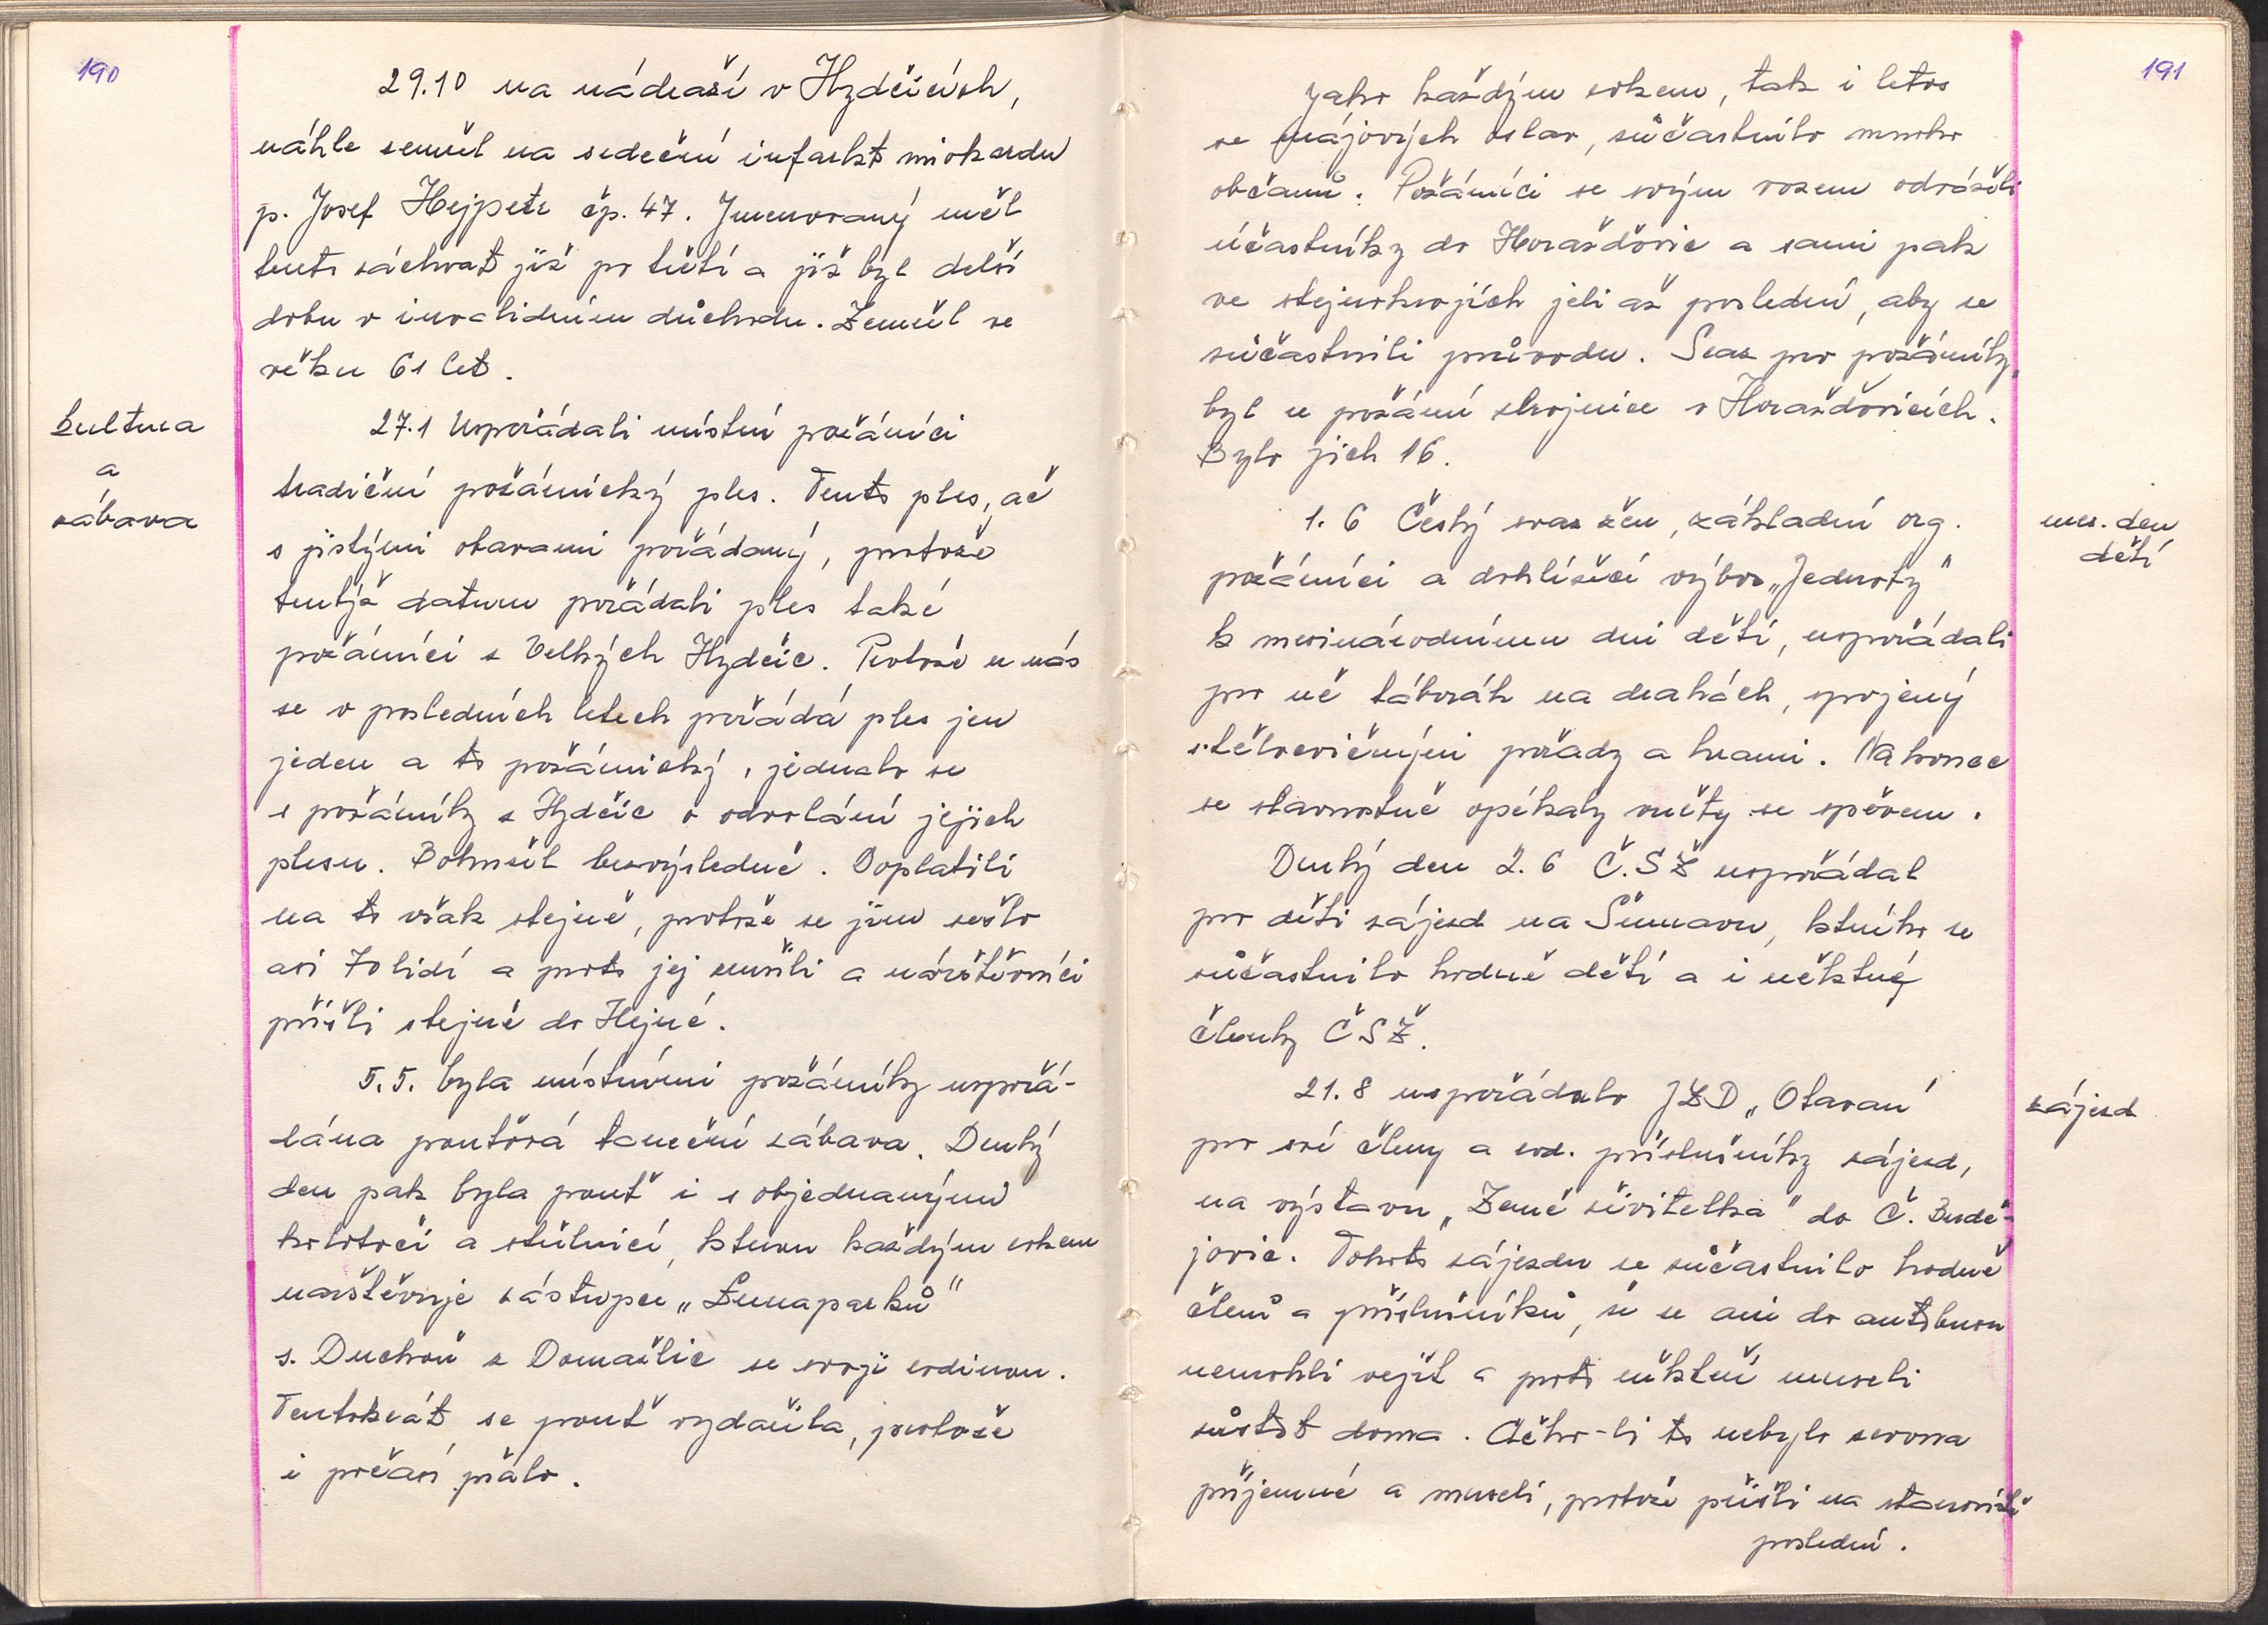 190
29.10 na nádraží v Hydčicích,
náhle zemřel na srdeční infarkt miokardu
p. Josef Hejpetr čp. 47. Jmenovaný měl
tento záchvat již po třetí a již byl delší
dobu v invalidním důchodu. Zemřel ve
věku 61 let.
kultura
a
zábava
27.1 Uspořádali místní požárníci
tradiční požárnický ples. Tento ples, ač
s jistými obavami pořádaný, protože
tentýž datum pořádali ples také
požárníci z Velkých Hydčic. Protože u nás
se v posledních letech pořádá ples jen
jeden a to požárnický, jednalo se
s požárníky z Hydčic o odvolání jejich
plesu. Bohužel bezvýsledně. Doplatili
na to však stejně, protože se jim sešlo
asi 70 lidí a proto jej zrušili a návštěvníci
přišli stejně do Hejné.
5.5. byla místními požárníky uspořá-
dána pouťová taneční zábava. Druhý
den pak byla pouť i s objednanými
kolotoči a střelnicí, kterou každým rokem
navštěvuje zástupce „Lunaparků"
s. Duchoň z Domažlic se svojí rodinou.
Tentokrát se pouť vydařila, protože
i počasí přálo.
191
Jako každým rokem, tak i letos
se májových oslav, súčastnilo mnoho
občanů. Požárníci se svým vozem odváželi
účastníky do Horažďovic a sami pak
ve stejnokrojích jeli až poslední, aby se
súčastnili průvodu. Sraz pro požárníky
byl u požární zbrojnice v Horažďovicích.
Bylo jich 16.
mez. den
dětí
1. 6 Český svaz žen, základní org.
požárníci a dohlížecí výbor „Jednoty"
k mezinárodnímu dni dětí, uspořádali
pro ně táborák na drahách, spojený
s tělocvičnými pořady a hrami. Nakonec
se slavnostně opékaly vuřty se zpěvem.
Druhý den 2. 6 Č.SŽ uspořádal
pro děti zájezd na Šumavu, kterého se
zůčastnilo hodně dětí a i některé
členky ČSŽ.
zájezd
21. 8 uspořádalo JZD „Otavan"
pro své členy a rod. příslušníky zájezd,
na výstavu „Země živitelka" do Č. Budě-
jovic. Tohoto zájezdu se zůčastnilo hodně
členů a příslušníků, že se ani do autobusu
nemohli vejít a proto někteří museli
zůstat doma. Ačko-li to nebylo zrovna
příjemné a museli, protože přišli na stanoviště
poslední.